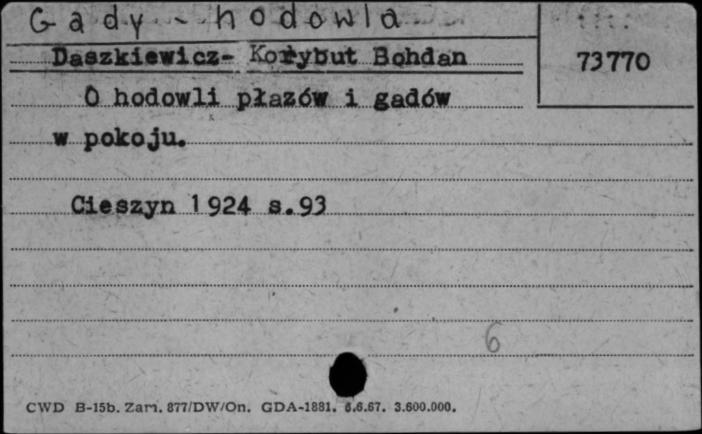 Gady - hodowla
73770
Daszkiewicz- Korybut Bohdan
O hodowli płazów i gadów
w pokoju.
Cieszyn 1924 s.93
6
CWD B-15b. Zam. 877/DW/On. GDA-1881. 6.6.67. 3.600.000.